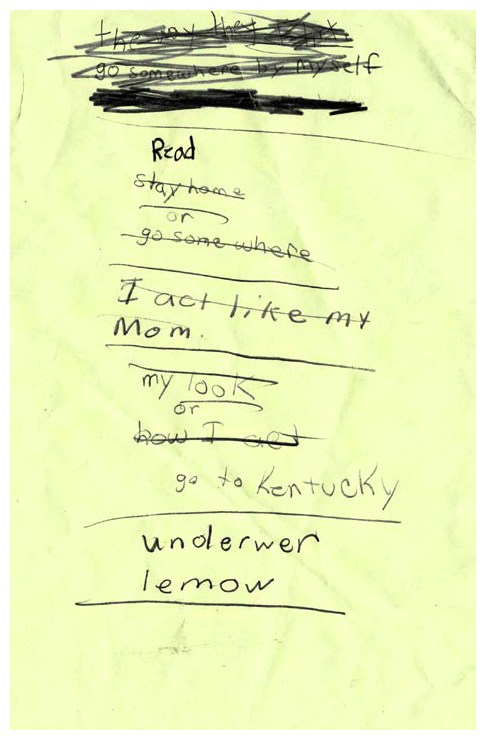 the way they
go somewhere by myself
Read
stay home
or
go some where
I act like my
Mom.
my look
or
how I act
go to Kentucky
underwer
lemow